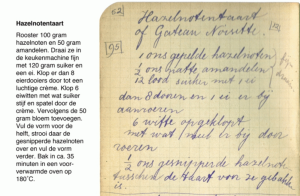 Hazelnotentaart
Rooster 100 gram
hazelnoten en 50 gram
amandelen. Draai ze in
de keukenmachine fijn
met 120 gram suiker en
een ei. Klop er dan 8
eierdooiers door tot een
luchtige crème. Klop 6
eiwitten met wat suiker
stijf en spatel door de
crème. Vervolgens de 50
gram bloem toevoegen.
Vul de vorm voor de
helft, strooi daar de
gesnipperde hazelnoten
over en vul de vorm
verder. Bak in ca. 35
minuten in een voor-
verwarmde oven op
180°C.
62
Hazelnotentaart
of Gateau Noisette.
95
1 ons gepelde hazelnoten
1/2 ons matte amandelen
12 lood suiker met 1 ei
fijn
dan 8 doren en 1 ei er bij
aanroeren
6 witte opgeklopt
met wat meel er bij door
roeren
1/2 ons gesnipperde hazelnoot
tusschen de taart voor ze gebakken
is.